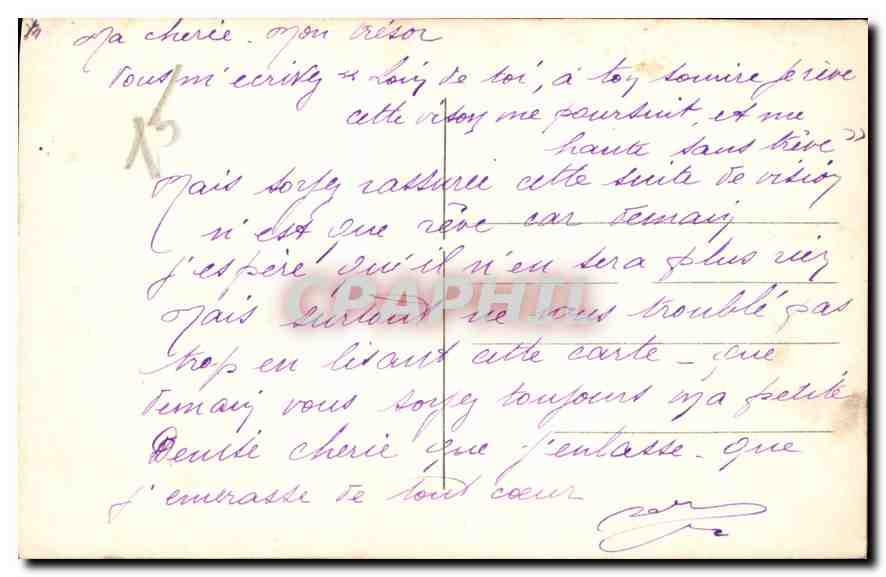 Ma cherie. Mon trésor
Vous m'ecrivez "Loin de toi, à ton sourire je rève
cette vison me poursuit, et me
hante sans trève"
Mais soyez rassurée cette suite de vision
n'est que rêve car demain
j'espére qu'il n'en sera plus rien
Mais surtout ne vous troublé pas
trop en lisant cette carte - que
demain vous soyez toujours ma petite
Denise cherie que j'enlasse - que
j'emrasse de tout cœur
CPAPHIL